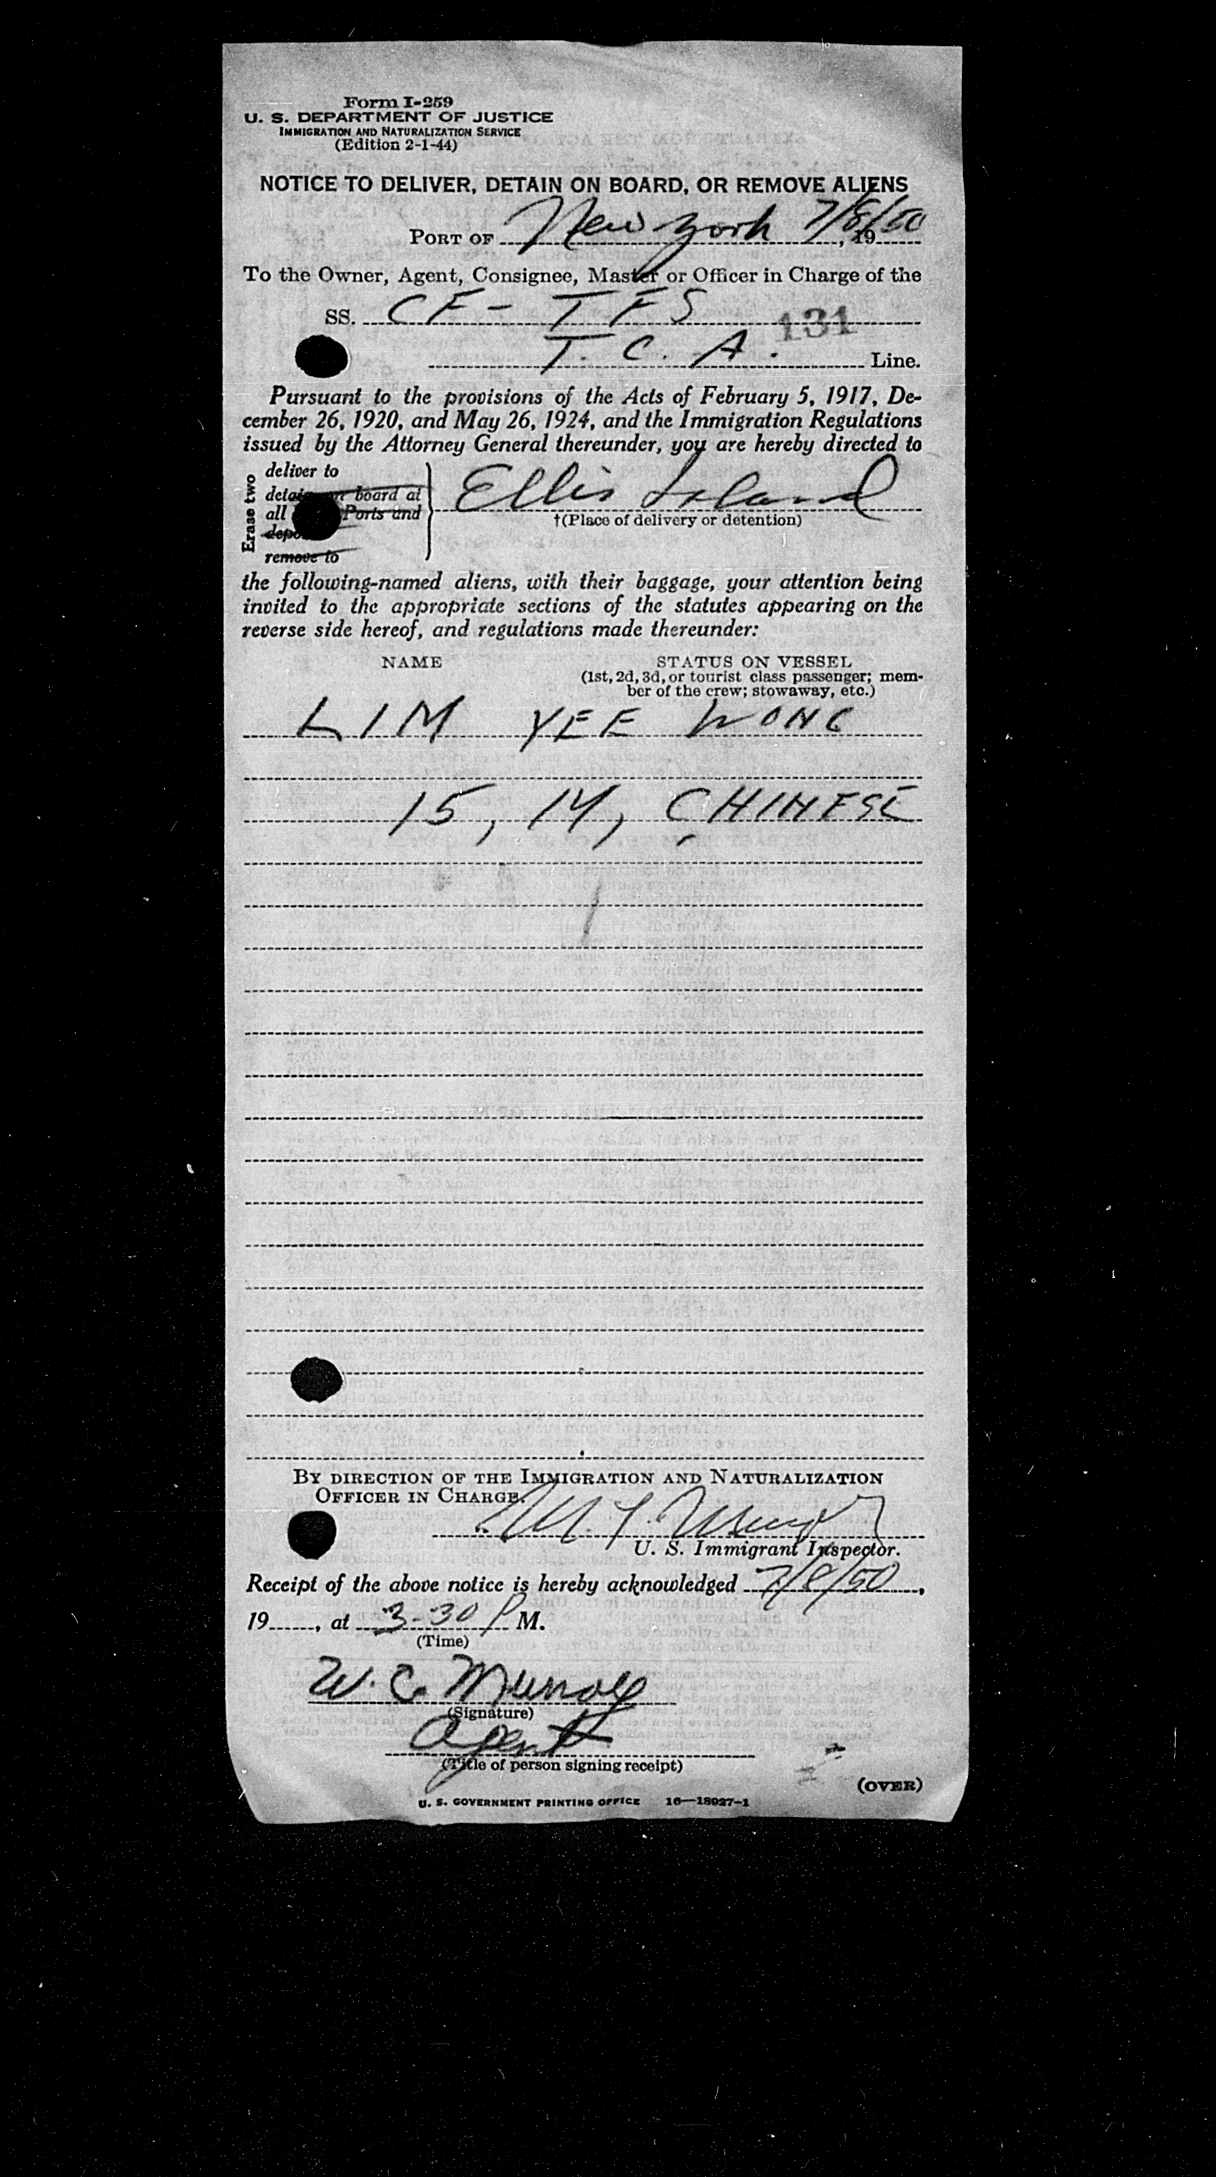 Form I-259
U. S. DEPARTMENT OF JUSTICE
IMMIGRATION AND NATURALIZATION SERVICE
(Edition 2-1-44)
NOTICE TO DELIVER, DETAIN ON BOARD, OR REMOVE ALIENS
PORT OF New York 7/8/50, 19
To the Owner, Agent, Consignee, Master or Officer in Charge of the
SS. CF-TFS
131
T. C. A. Line.
Pursuant to the provisions of the Acts of February 5, 1917, De-
cember 26, 1920, and May 26, 1924, and the Immigration Regulations
issued by the Attorney General thereunder, you are hereby directed to
Erase two
deliver to
board at
all Ports and
remove to
Ellis Island
†(Place of delivery or detention)
the following-named aliens, with their baggage, your attention being
invited to the appropriate sections of the statutes appearing on the
reverse side hereof, and regulations made thereunder:
NAME STATUS ON VESSEL
(1st, 2d, 3d, or tourist class passenger; mem-
ber of the crew; stowaway, etc.)
LIM YEE WONG
15, 14, CHINESE
BY DIRECTION OF THE IMMIGRATION AND NATURALIZATION
OFFICER IN CHARGE.
U. S. Immigrant Inspector.
Receipt of the above notice is hereby acknowledged 7/8/50,
19, at 3-30 P M.
(Time)
W. C.
(Signature)
Agent
(Title of person signing receipt)
(OVER)
U. S. GOVERNMENT PRINTING OFFICE 16—18927-1